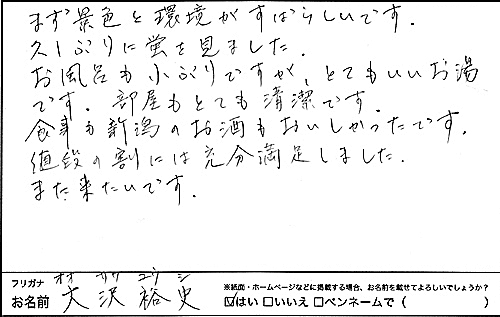 まず景色と環境がすばらしいです.
久しぶりに蛍を見ました.
お風呂も小ぶりですが、とてもいいお湯
です. 部屋もとても清潔です.
食事も新潟のお酒もおいしかったです.
値段の割には充分満足しました.
また来たいです.
フリガナ オオ サワ ユウ シ
お名前 大沢裕史
※紙面・ホームページなどに掲載する場合、お名前を載せてよろしいでしょうか?
☑はい □いいえ □ペンネームで ( )